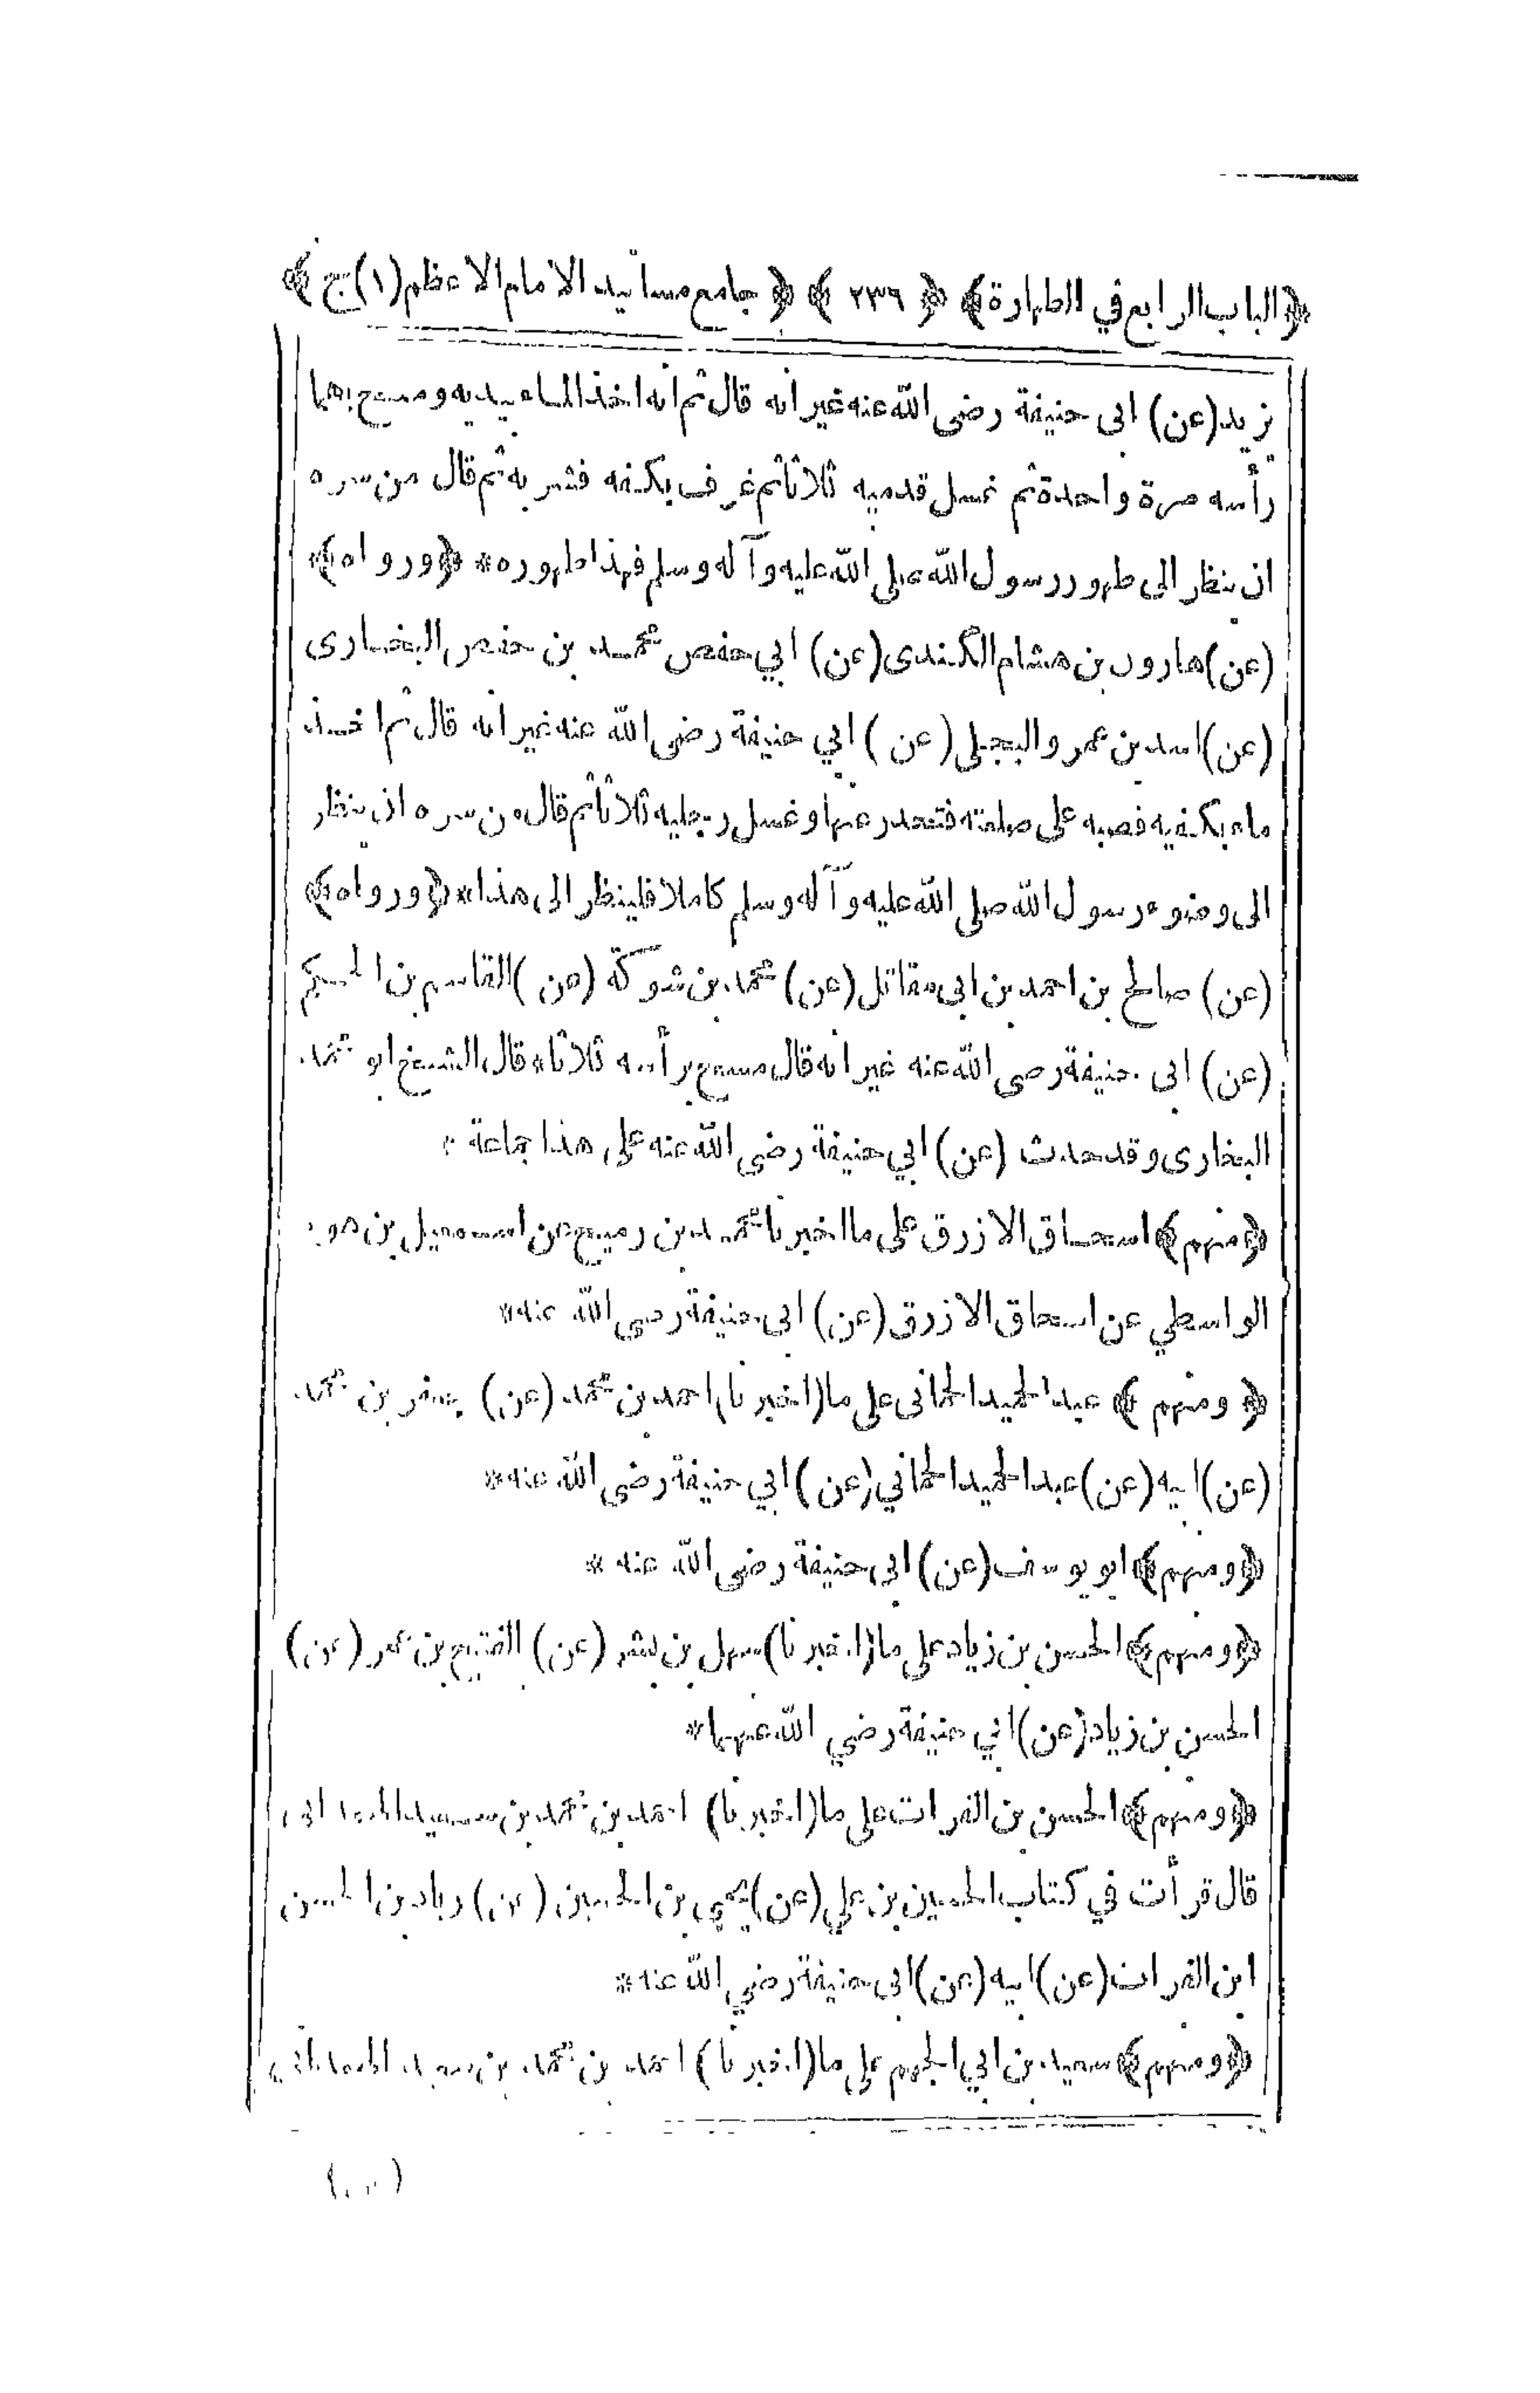 ﴿الباب الرابع في الطهارة﴾ ﴿ ٢٣٦ ﴾ ﴿ جامع مسانيد الامام الاعظم (١) ج ﴾
يزيد (عن) ابى حنيفة رضى الله عنه غير انه قال ثم انه اخذ الماء بيديه ومسح بهما
رأسه مرة واحدة ثم غسل قدميه ثلاثا ثم غرف بكفه فشربه ثم قال من سره
ان ينظر الى طهور رسول الله صلى الله عليه وآله وسلم فهذا طهوره * ﴿ورواه﴾
(عن) هارون بن هشام الكندى (عن) ابي حفص محمد بن حفص البخارى
(عن) اسد بن عمرو البجلى (عن) ابي حنيفة رضى الله عنه غير انه قال ثم اخذ
ماء بكفيه فصبه على صلعته فتحدر عنها وغسل رجليه ثلاثا ثم قال من سره ان ينظر
الى وضوء رسول الله صلى الله عليه وآله وسلم كاملا فلينظر الى هذا * ﴿ورواه﴾
(عن) صالح بن احمد بن ابى مقاتل (عن) محمد بن شوكة (عن) القاسم بن الحكم
(عن) ابى حنيفة رضى الله عنه غير انه قال مسح برأسه ثلاثا * قال الشيخ ابو محمد
البخارى وقد حدث (عن) ابي حنيفة رضى الله عنه على هذا جماعة *
﴿منهم﴾ اسحاق الازرق على ما اخبرنا محمد بن رميح عن اسمعيل بن هود
الواسطي عن اسحاق الازرق (عن) ابى حنيفة رضى الله عنه *
﴿ومنهم﴾ عبد الحميد الحمانى على ما (اخبرنا) احمد بن محمد (عن) جعفر بن محمد
(عن) ابيه (عن) عبد الحميد الحماني (عن) ابي حنيفة رضى الله عنه *
﴿ومنهم﴾ ابو يوسف (عن) ابى حنيفة رضى الله عنه *
﴿ومنهم﴾ الحسن بن زياد على ما (اخبرنا) سهل بن بشر (عن) الفتح بن عمر (عن)
الحسن بن زياد (عن) ابي حنيفة رضي الله عنهما *
﴿ومنهم﴾ الحسن بن الفرات على ما (اخبرنا) احمد بن محمد بن سعيد الهمدانى
قال قرأت في كتاب الحسين بن علي (عن) يحيى بن الحسين (عن) زياد بن الحسن
ابن الفرات (عن) ابيه (عن) ابى حنيفة رضي الله عنه *
﴿ومنهم﴾ سعيد بن ابي الجهم على ما (اخبرنا) احمد بن محمد بن سعيد الهمدانى